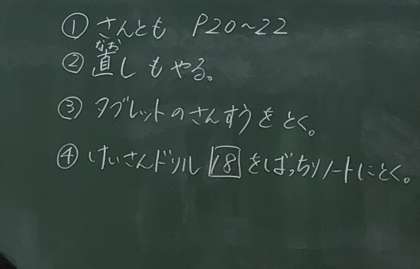 ① さんとも P20～22
なお
② 直しもやる。
③ タブレットのさんすうをとく。
④ けいさんドリル 18 をばっちりノートにとく。